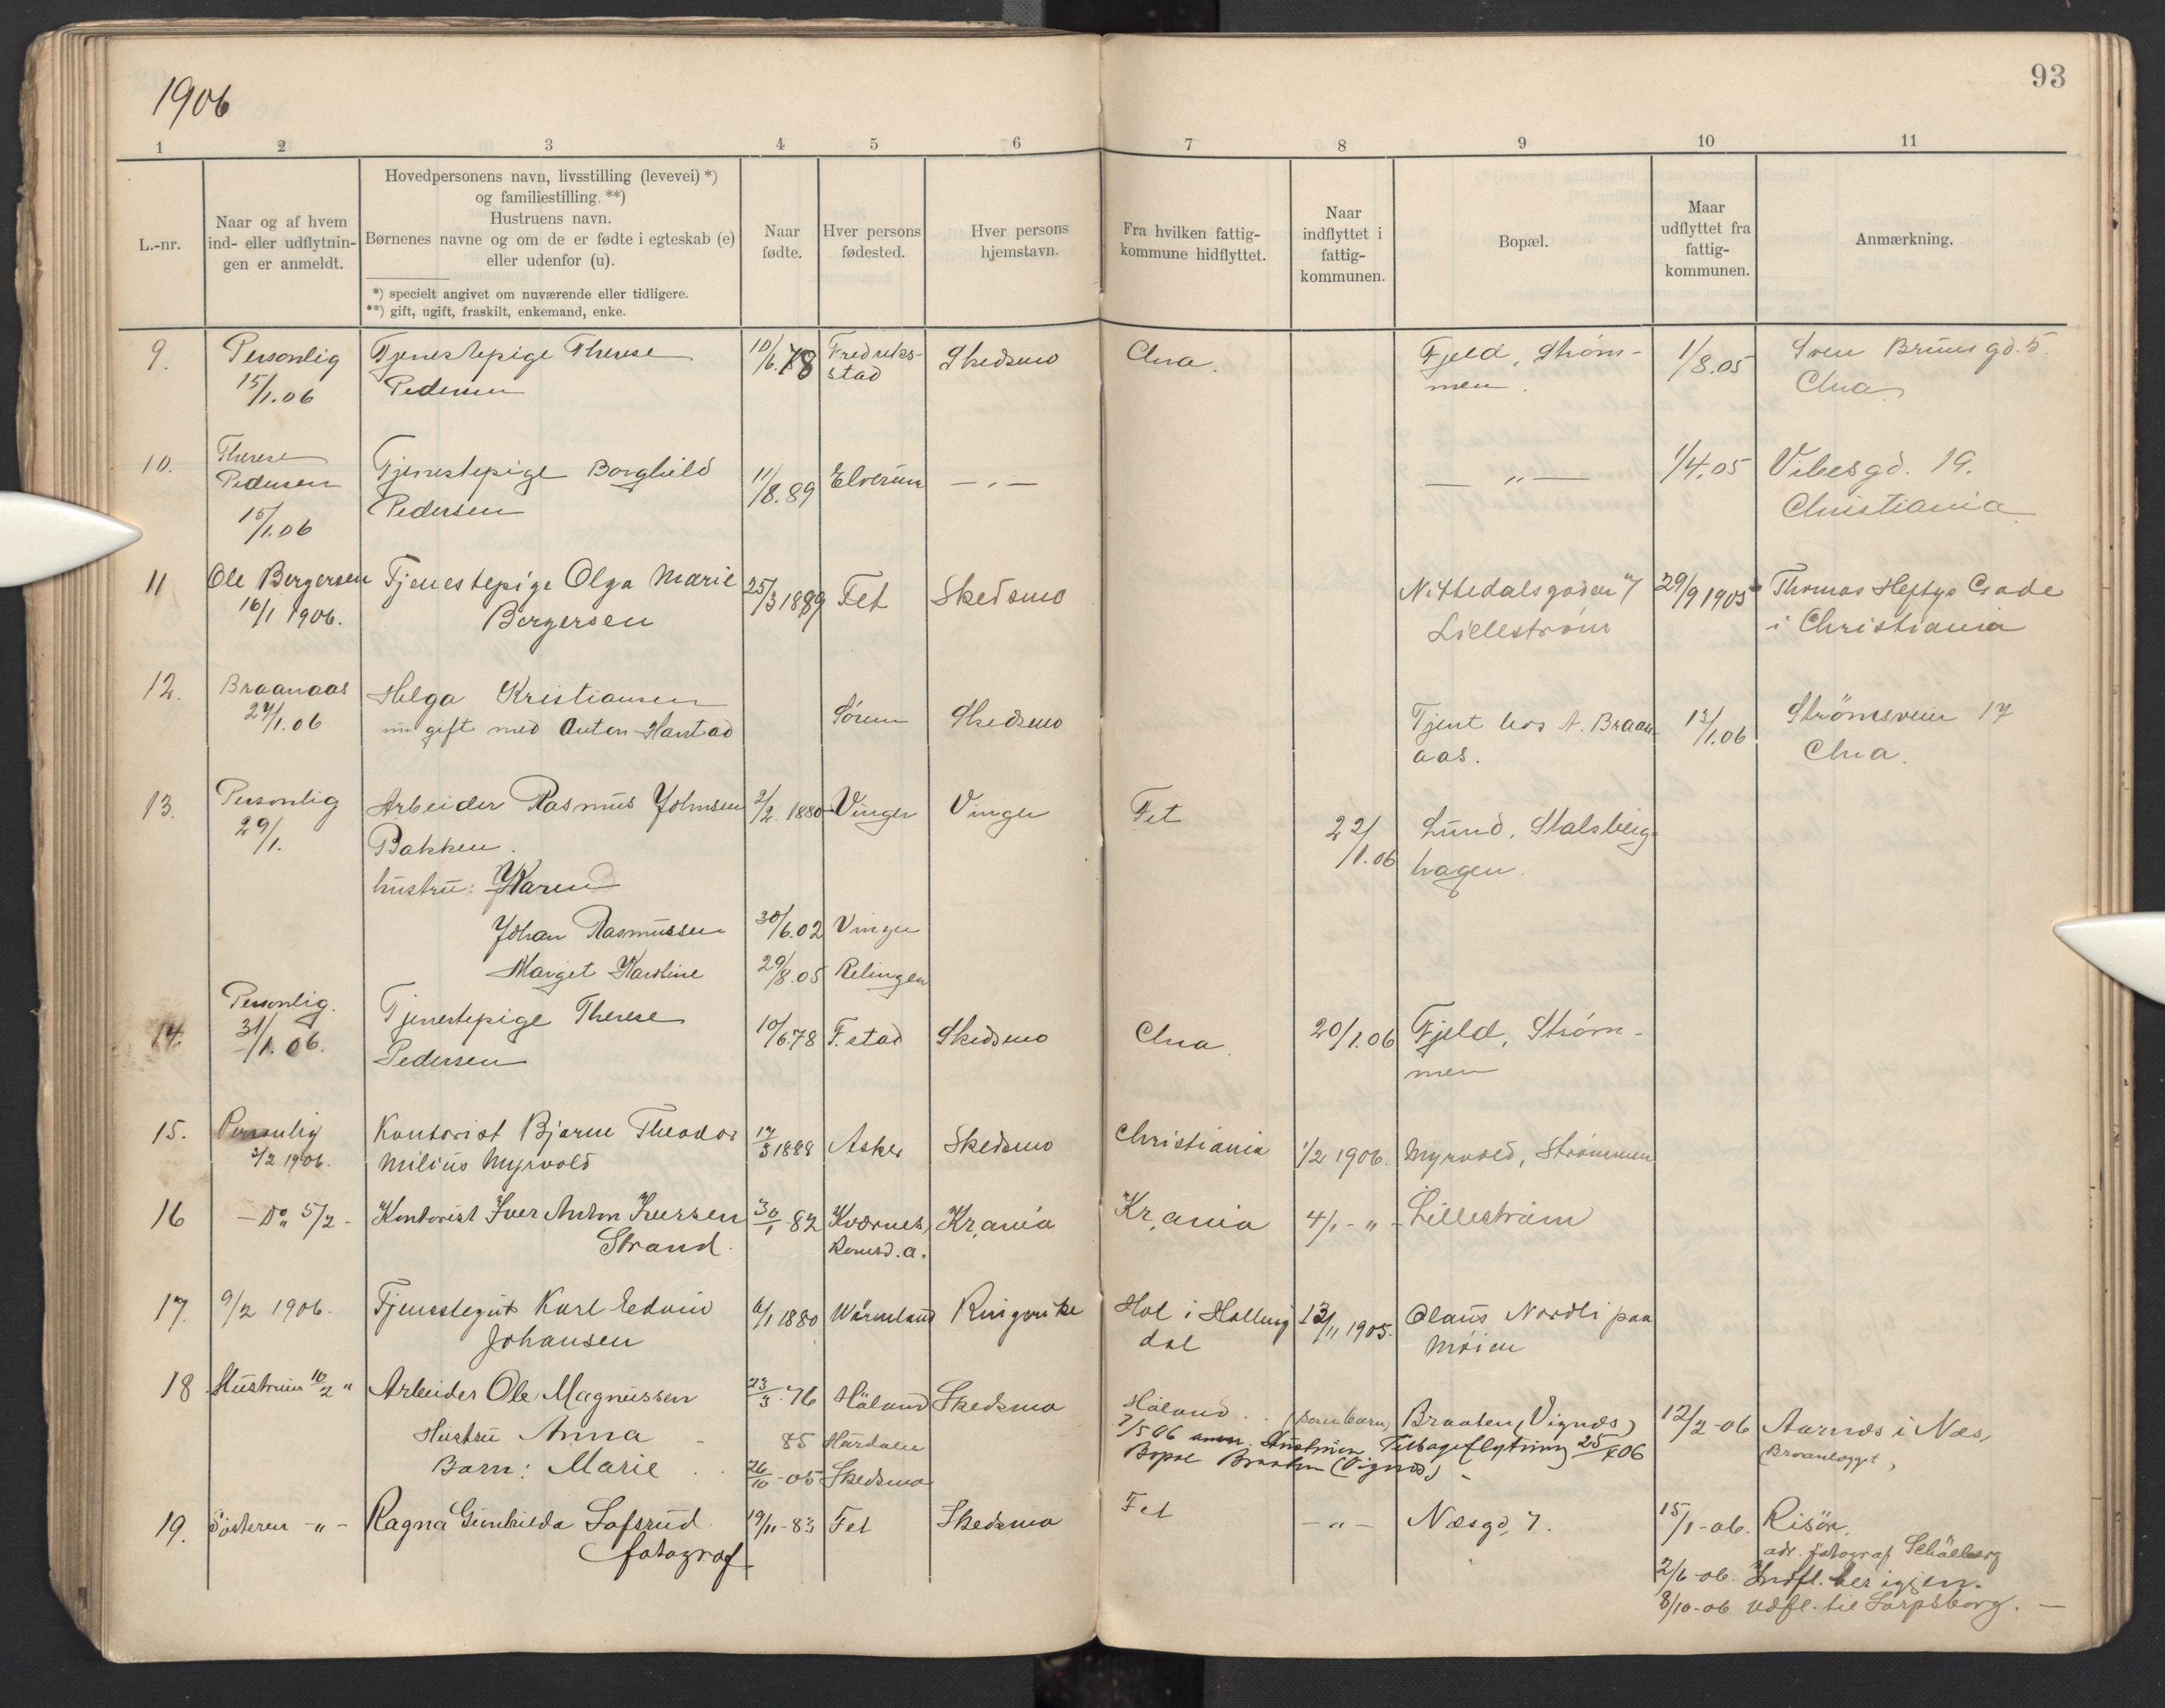 1906
93
1 2 3 4 5 6 7 8 9 10 11
L.-nr.
Naar og af hvem
ind- eller udflytnin-
gen er anmeldt.
Hovedpersonens navn, livsstilling (levevei) *)
og familiestilling. **)
Hustruens navn.
Børnenes navne og om de er fødte i egteskab (e)
eller udenfor (u).
*) specielt angivet om nuværende eller tidligere.
**) gift, ugift, fraskilt, enkemand, enke.
Naar
fødte.
Hver persons
fødested.
Hver persons
hjemstavn.
Fra hvilken fattig-
kommune hidflyttet.
Naar
indflyttet i
fattig-
kommunen.
Bopæl.
Maar
udflyttet fra
fattig-
kommunen.
Anmærkning.
9. Personlig Tjenestepige Therese 10/6.78 Fredriks- Skedsmo Chra. Fjeld, Strøm- 1/8.05 Sven Bruns gd. 5.
15/1.06 Pedersen stad men. Chra.
10. Therese
Pedersen Tjenestepige Borghild 11/8.89 Elverum — " — — " — 1/4.05 Vibesgd. 19.
15/1.06 Pedersen Christiania
11 Ole Bergersen Tjenestepige Olga Marie 25/3 1889 Fet Skedsmo Nittedalsgaden 7 29/9 1905 Thomas Heftys Gade
16/1 1906. Bergersen Lillestrøm i Christiania
12. Braanaas Helga Kristiansen Sørum Skedsmo Tjent hos A. Braan- 13/1.06 Strömsveien 17
27/1.06 nu gift med Anton Hanstad aas. Chra.
13. Personlig Arbeider Rasmus Johnsen 2/2. 1880 Vinger Vinger Fet 22/1.06 Lund, Stalsberg-
29/1. Bakken. hagen.
hustru: Karen
Johan Rasmussen 30/6.02 Vinger
Marget Karoline 29/8.05 Relingen
14. Personlig. Tjenestepige Therese 10/6 78 F.stad Skedsmo Chra. 20/1.06 Fjeld, Strøm-
31/1.06. Pedersen men
15. Personlig Kontorist Bjarne Theodor 17/3 1888 Asker Skedsmo Christiania 1/2 1906. Myrvold, Strømmen
2/2 1906. Milius Myrvold
16 — Do. 5/2 - Kontorist Iver Anton Iversen 30/1 - 82 Kvernes, Kr.ania Kr.ania 4/1 - " - Lillestrøm
Strand. Romsd. a.
17. 9/2 1906. Tjenestegut Karl Edvin 6/1 1880 Wärmland Ringerike Hol i Halling 13/11 1905. Olaus Nordli paa
Johansen dal Moien
18 Hustruen 10/2 " Arbeider Ole Magnussen 23/3 - 76 Høland Skedsmo Høland (som barn) Braaten, (Vignæs) 12/2 -06 Aarnæs i Næs,
Hustru Anna - 85 7/5 06 anm. Hustruen Tilbageflytning 25/4 06 (Broanlægget)
Barn: Marie 26/10 -05 Skedsmo Bopæl Braaten (Vignæs) -
19. Søsteren — " — Ragna Gunhilda Lofsrud 19/11 - 83 Fet Skedsmo Fet — " — Næsgd. 7. 15/1 -06. Risør.
fotograf adr. fotograf
2/6 -06. Indfl. her igjen.
8/10 -06 Udfl. til Sarpsborg. —